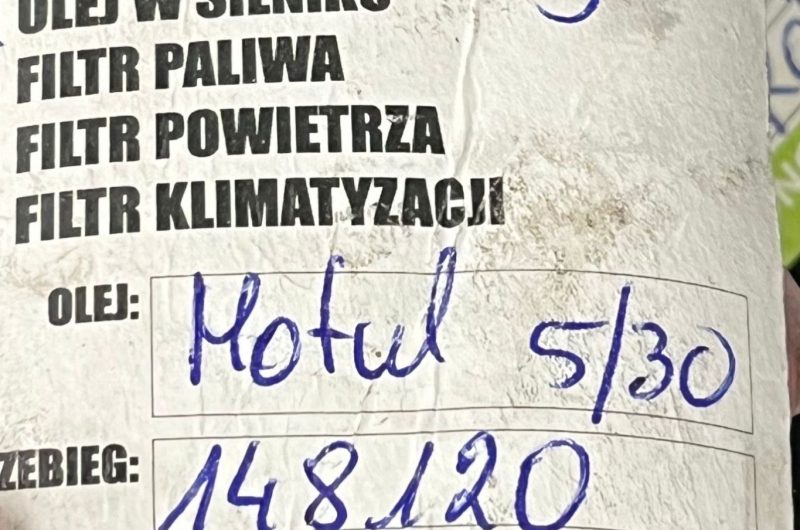 OLEJ W SILNIKU
FILTR PALIWA
FILTR POWIETRZA
FILTR KLIMATYZACJI
OLEJ: Motul 5/30
ZEBIEG: 148120